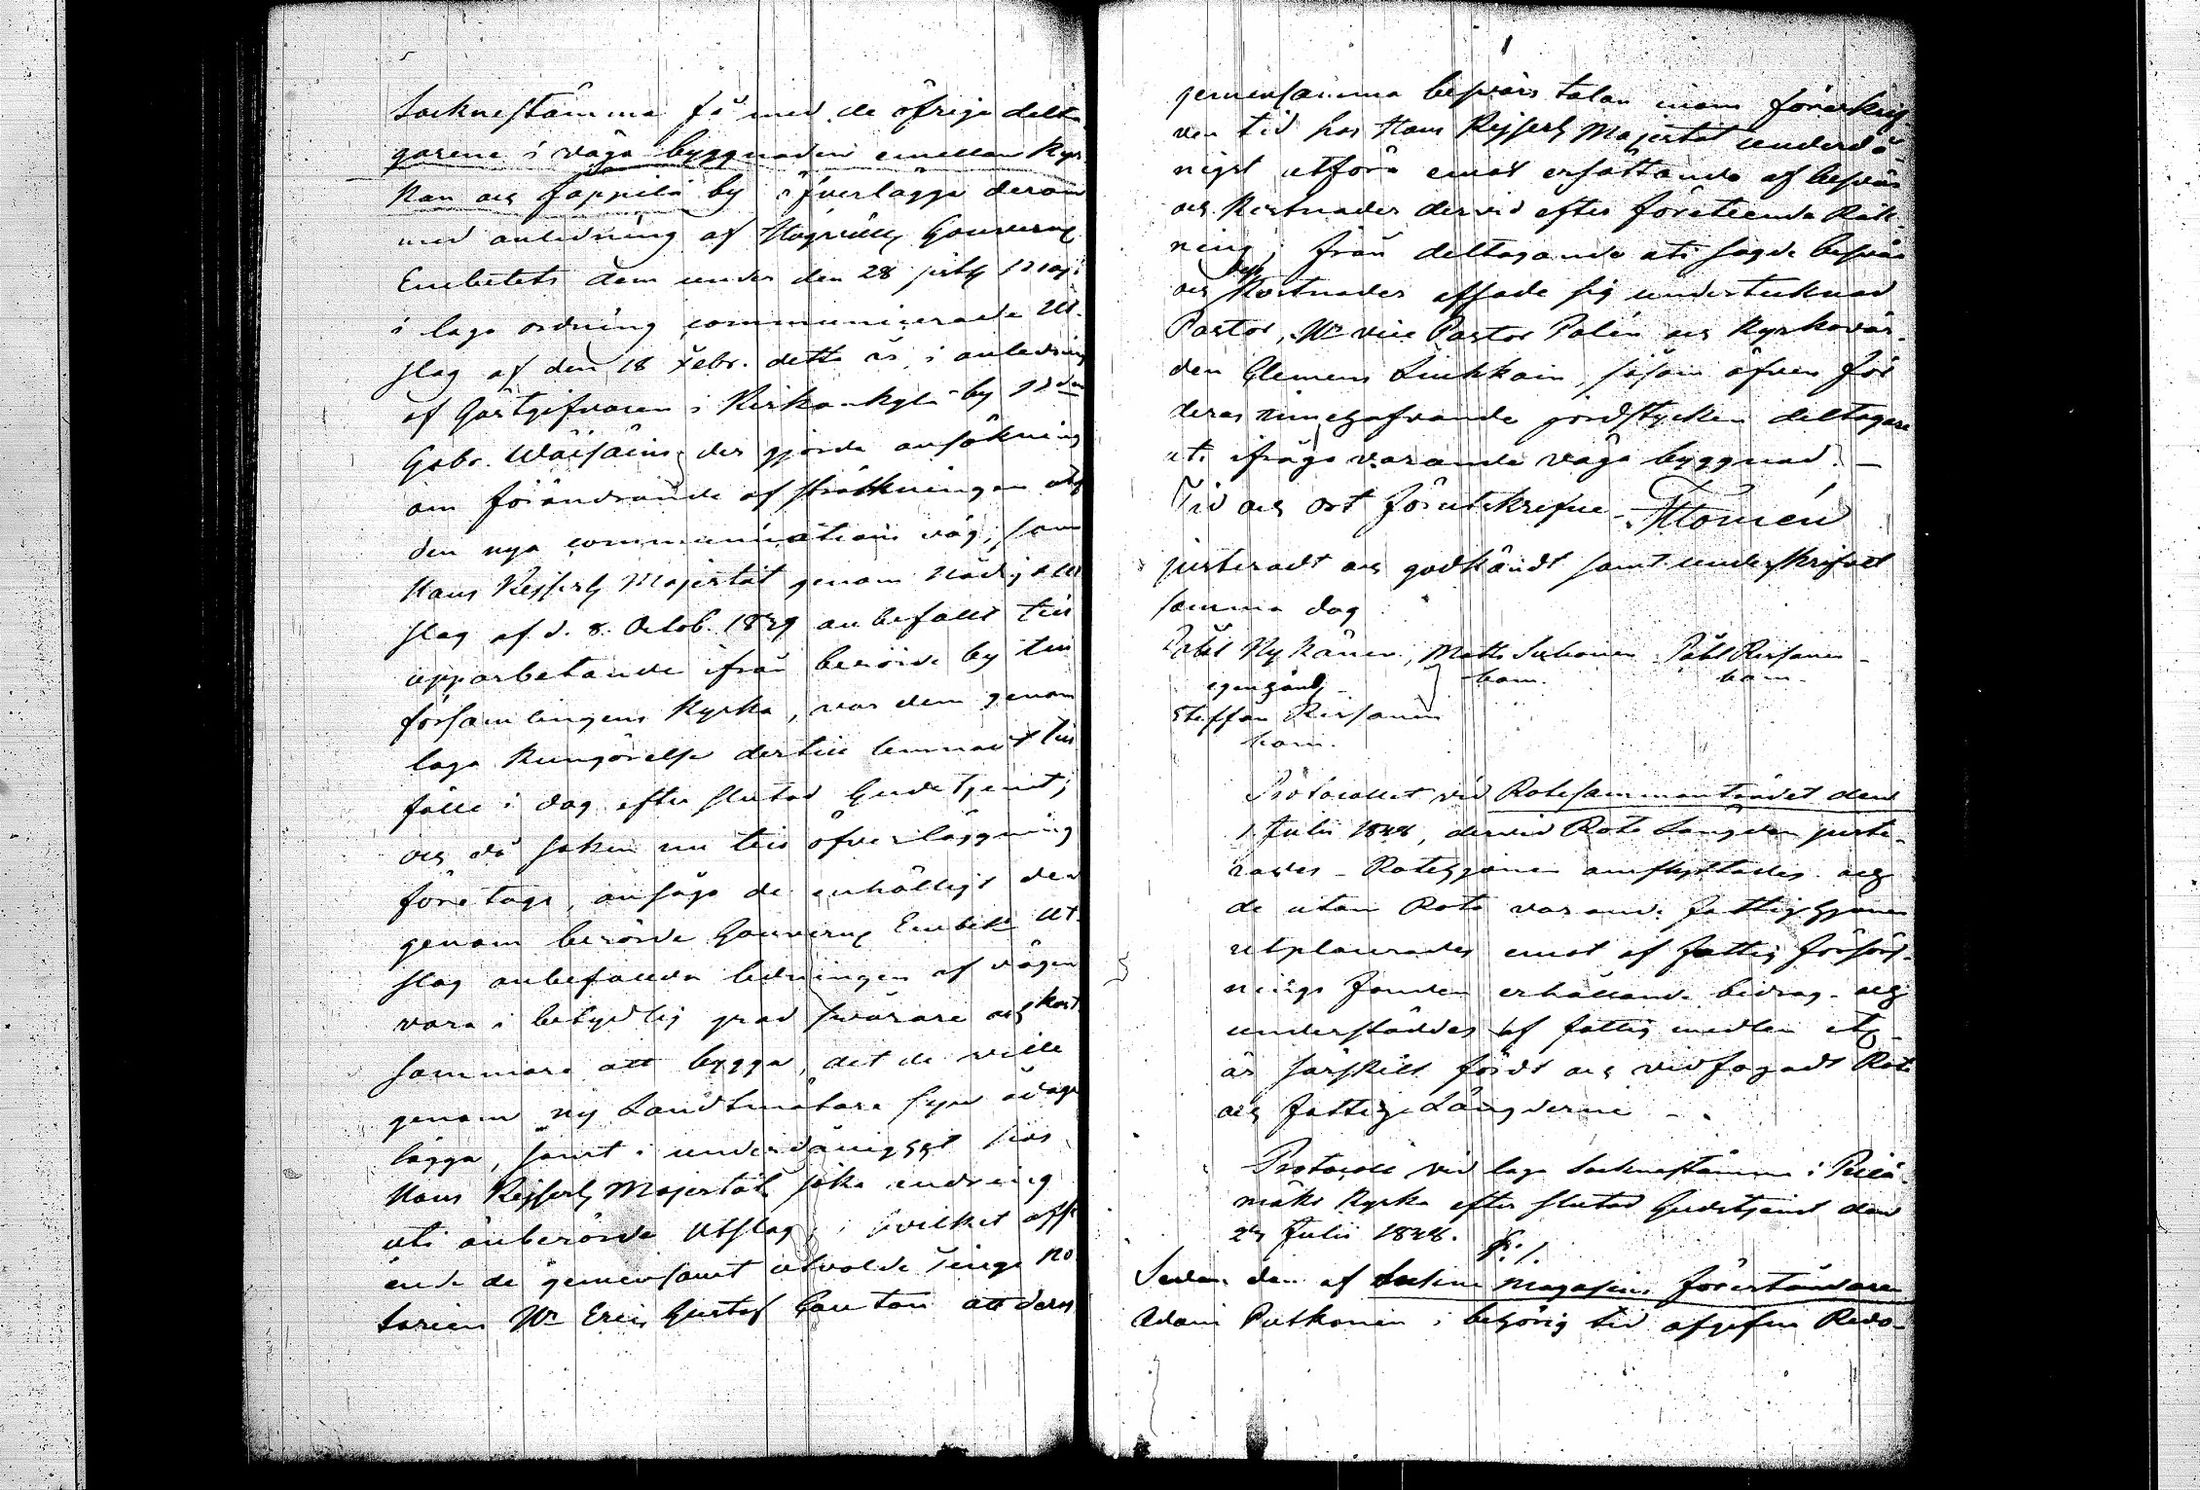 Socknestämma få med de öfrige delta-
garene i väga byggnaden emellan Kyr-
kan och Jäppilä by öfverlägga derom
med anledning af Högvälb. Gouvern.
Embetets dem under den 28 sistl.
i laga ordning communicerade Ut-
slag af den 18 Febr. detta år, i anledning
af Gästgifvaren i Kirkonkylä by
Gabr. Wäisäins der gjorde ansökning
om förändrande af sträckningen utaf
den nya communications väg, som
Hans Kejserl. Majestät genom Nådigt Ut-
slag af d. 8. Octob. 1839 anbefallt till
upparbetande ifrån berörde by till
församlingens Kyrka, var dem genom
laga Kungörelse dertill lemnadt till
fälle i dag efter slutad Gudstjenst;
och då saken nu till öfverläggning
företags, ansågo de enhälligt den
genom berörde Gouvern. Embets Ut-
slag anbefallda ledningen af vägen
vara i betydlig grad svårare och kost-
sammare att bygga, det de ville
genom ny Landtmätare syn ådaga
lägga, samt i underdånighet hos
Hans Kejserl. Majestät söka ändring
uti ånberörde Utslag; i hvilket afse-
ende de gemensamt utvalde Tings No-
tarien Hr Eric Gustaf att deras
gemensamma besvärs talan inom föreskrif-
ven tid hos Hans Kejserl. Majestät underdå-
nigst utföra emot ersättande af besvär
och Kostnader dervid efter företeende Räk-
ning; från deltagande uti sagde besvär
och Kostnader afsade sig undertecknad
Pastor, Hr vice Pastor Palén och Kyrkovär-
den Clemens Liukkoin, såsom äfven för
deras innehafvande jordstycken deltagare
uti ifråga varande väga byggnad. —
Tid och ort förutskrefne.
justeradt och godkändt samt underskrifvet
samma dag
Påhl Nykänen, Matts Suhonen Påhl Kirsanen
egenhänd. bom. bom.
Steffan Kirsanen
bom.
Protocollet vid Rotesammanträdet den
1 Julii 1848, dervid Rote Längden juste-
rades – Rotehjonen omflyttades och
de utan Rote varande fattighjonen
utplacerades emot af fattig försörj-
nings fonden erhållande bidrag och
understöddes af fattig medlen etc.
är särskilt fördt och vidfogadt Rote
och fattige Längderne –
Protocoll vid laga Socknestämma i Pielä-
mäki Kyrka efter slutad Gudstjenst den
Julii 1848.
§. 1.
Sedan den af Sockne magasins föreståndaren
Adam Putkonen i behörig tid afgifna Redo-